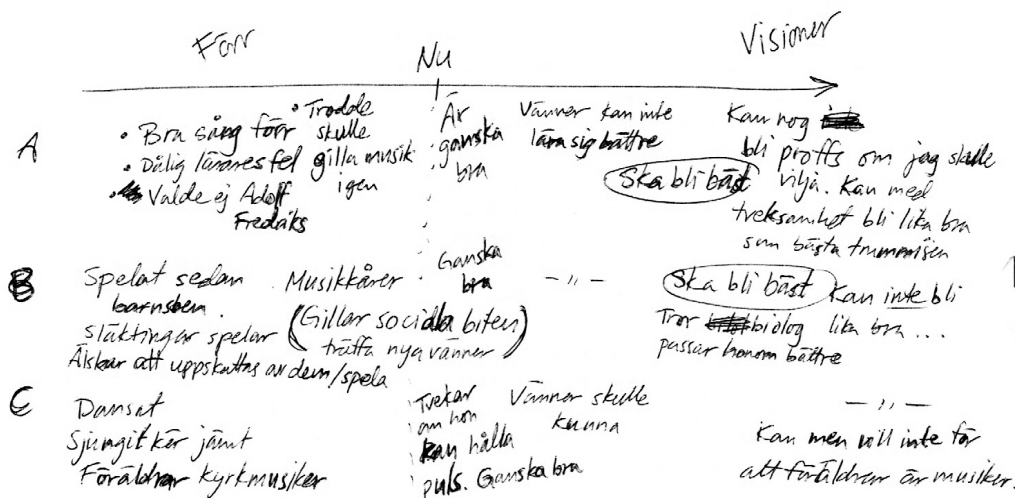 Förr
Nu
Visioner
A
• Bra sång förr
• Dålig lärares fel
• Valde ej Adolf
Fredriks
• Trodde
skulle
gilla musik
igen
Är
ganska
bra
Vänner kan inte
lära sig bättre
Ska bli bäst
Kan nog
bli proffs om jag skulle
vilja. Kan med
tveksamhet bli lika bra
som bästa trummisen
B
Spelat sedan
barnsben.
Släktingar spelar
Älskar att uppskattas av dem/spela
Musikkårer
(Gillar sociala biten
träffa nya vänner)
Ganska
bra
— " —
Ska bli bäst
Kan inte bli
lika bra...
Tror biolog
passar honom bättre
C
Dansat
Sjungit kör jämt
Föräldrar kyrkmusiker
Tvekar
om hon
kan hålla
puls. Ganska bra
Vänner skulle
kunna
— " —
Kan men vill inte för
att föräldrar är musiker.